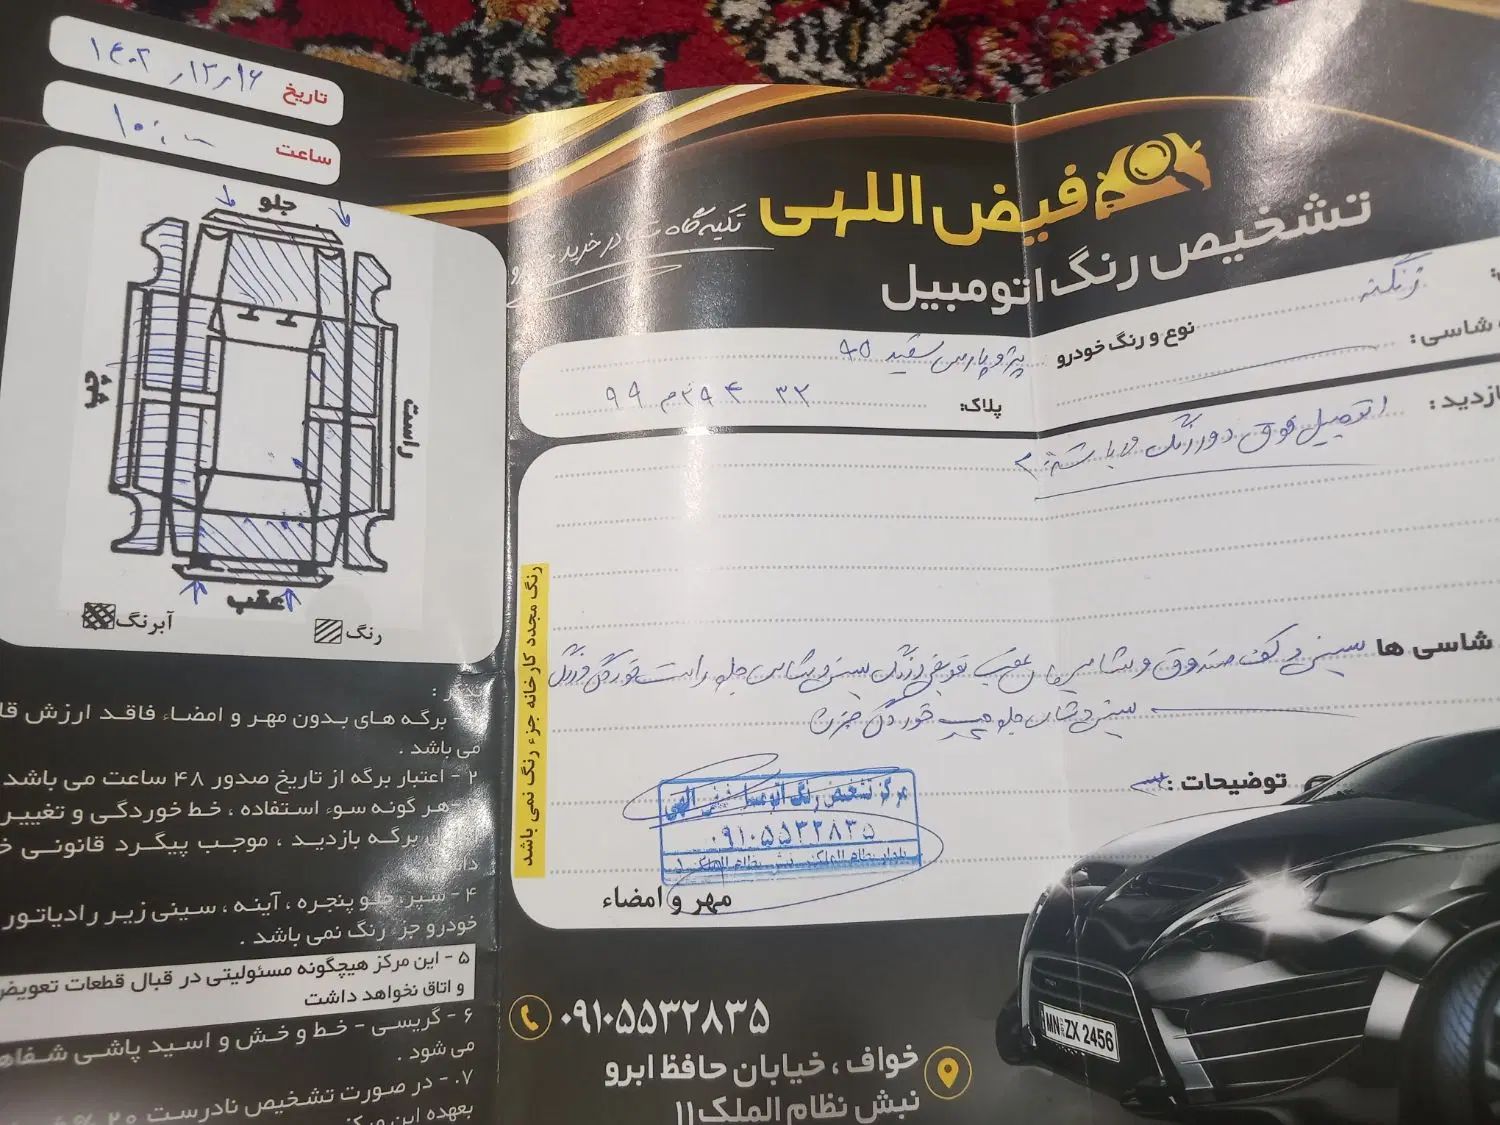 تاریخ ۱۴۰۲/۱۲/۱۶
ساعت ۱۰:۰۰
فیض اللهی
تکیه گاه شما در خرید خودرو
تشخیص رنگ اتومبیل
نوع و رنگ خودرو پژو پارس سفید ۹۵
پلاک: ۳۲ ۳۹۴ م ۹۹
شاسی:
ازدید: اتومبیل فوق دور رنگ می باشد
جلو
چپ
راست
عقب
رنگ
آبرنگ
رنگ مجدد کارخانه جزء رنگ نمی باشد
شاسی ها سینی و کف صندوق و شاسی های عقب تعویض و رنگ سینی و شاسی جلو راست خوردگی و رنگ
سینی و شاسی جلو چپ خوردگی جزئی
توضیحات:
مرکز تشخیص رنگ اتومبیل فیض الهی
۰۹۱۰۵۵۳۲۸۳۵
مهر و امضاء
برگه های بدون مهر و امضاء فاقد ارزش
می باشد .
۲ - اعتبار برگه از تاریخ صدور ۴۸ ساعت می باشد
هر گونه سوء استفاده ، خط خوردگی و تغییر
برگه بازدید ، موجب پیگرد قانونی
۴ - سپر، جلو پنجره ، آینه ، سینی زیر رادیاتور
خودرو جزء رنگ نمی باشد .
۵ - این مرکز هیچگونه مسئولیتی در قبال قطعات تعویض
و اتاق نخواهد داشت
۶ - گریسی - خط و خش و اسید پاشی
می شود .
۷- در صورت تشخیص نادرست ۲۰%
بعهده این
۰۹۱۰۵۵۳۲۸۳۵
خواف ، خیابان حافظ ابرو
نبش نظام الملک ۱۱
MN ZX 2456